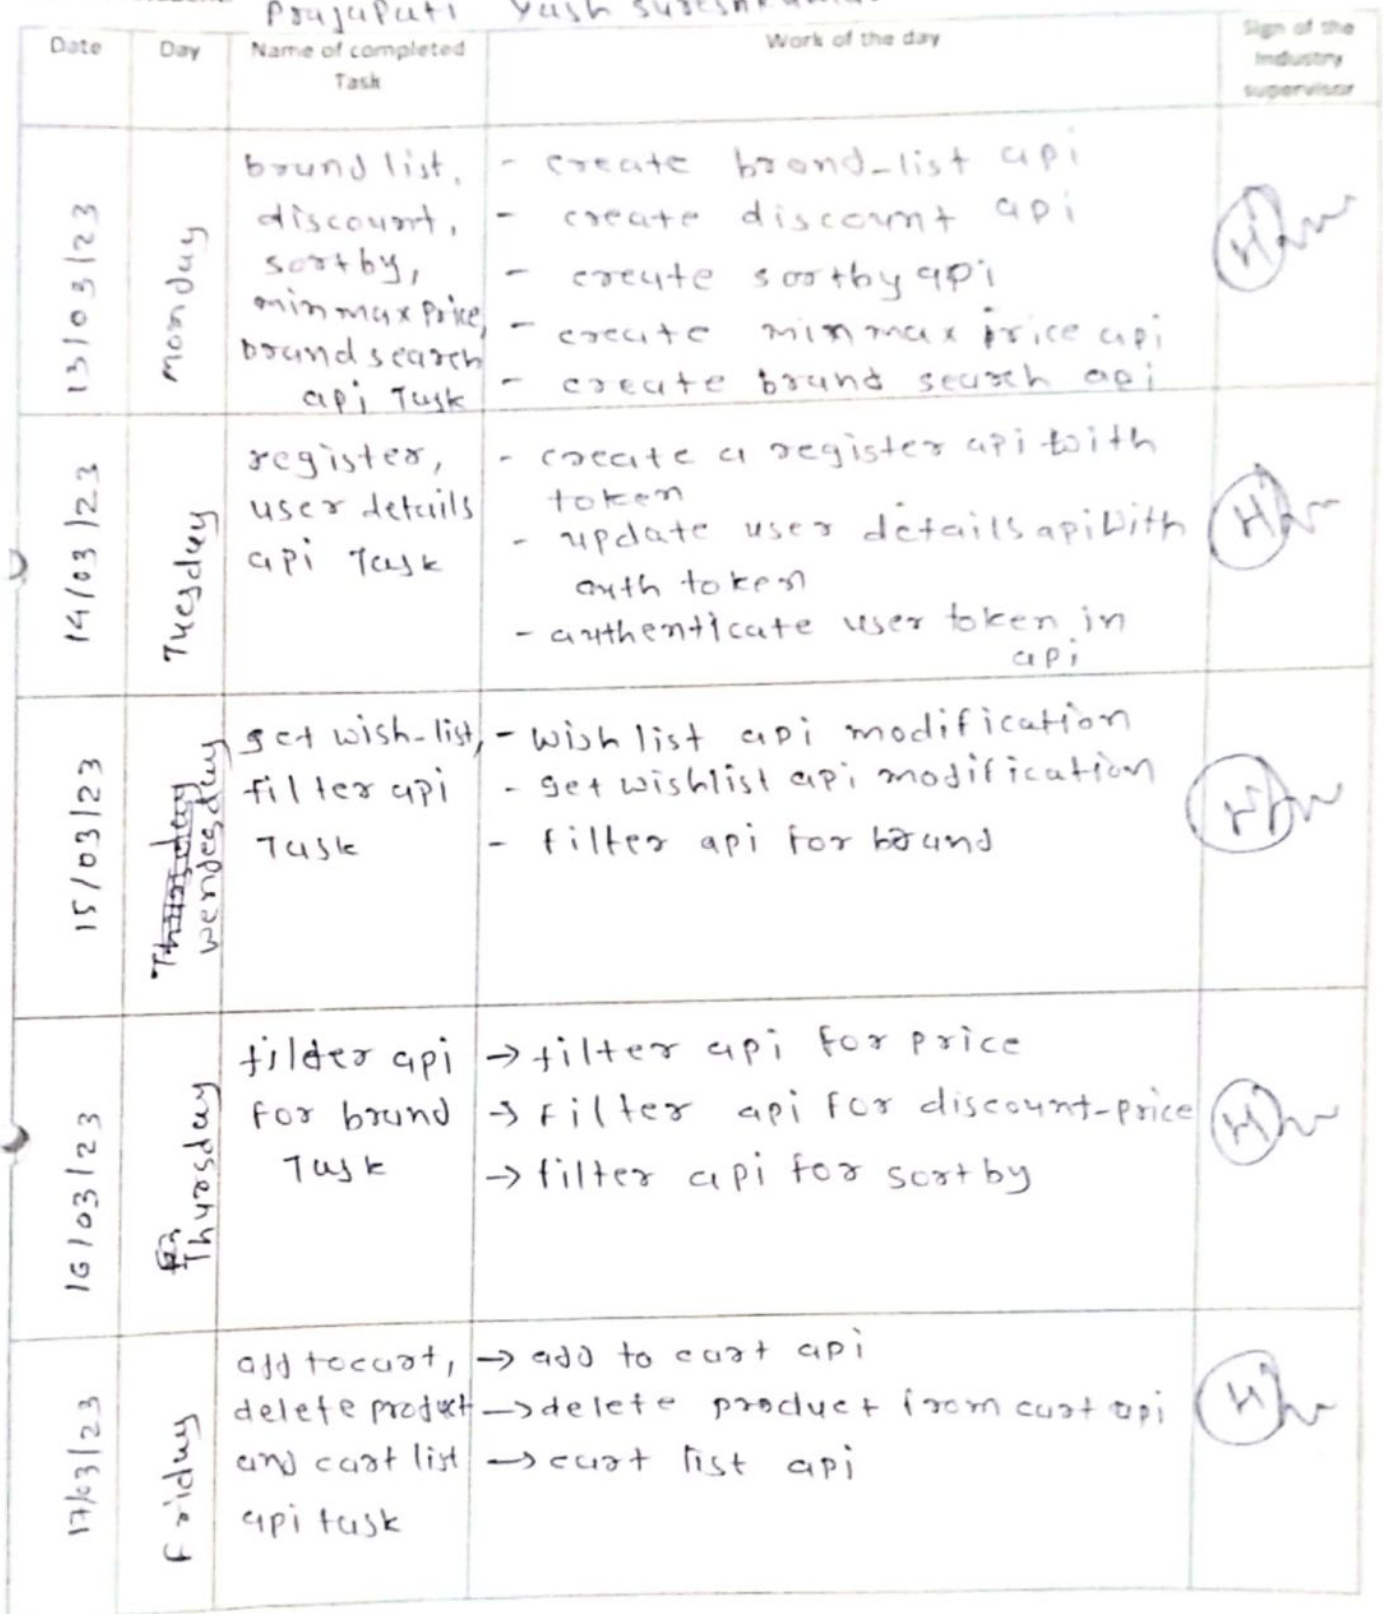 Prajapati Yash
Date
Day
Name of completed
Task
Work of the day
Sign of the
Industry
supervisor
13/03/23
Monday
brand list,
discount,
sortby,
minmax price,
brand search
api Task
- create brand-list api
- create discount api
- create sortby api
- create min max price api
- create brand search api
14/03/23
Tuesday
register,
user details
api Task
- create a register api with
token
- update user details api with
auth token
- authenticate user token in
api
15/03/23
wendesday
get wish-list,
filter api
Task
- wish list api modification
- get wishlist api modification
- filter api for brand
16/03/23
Thursday
filder api
for brand
Task
→ filter api for price
→ filter api for discount-price
→ filter api for sort by
17/03/23
Friday
add to cart,
delete product
and cart list
api task
→ add to cart api
→ delete product from cart api
→ cart list api